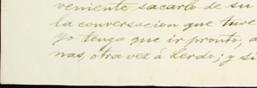 veniente sacarlo de su
la conversacion que tuve
yo tengo que ir pronto, a
nas, otra vez á Lerdo; y si